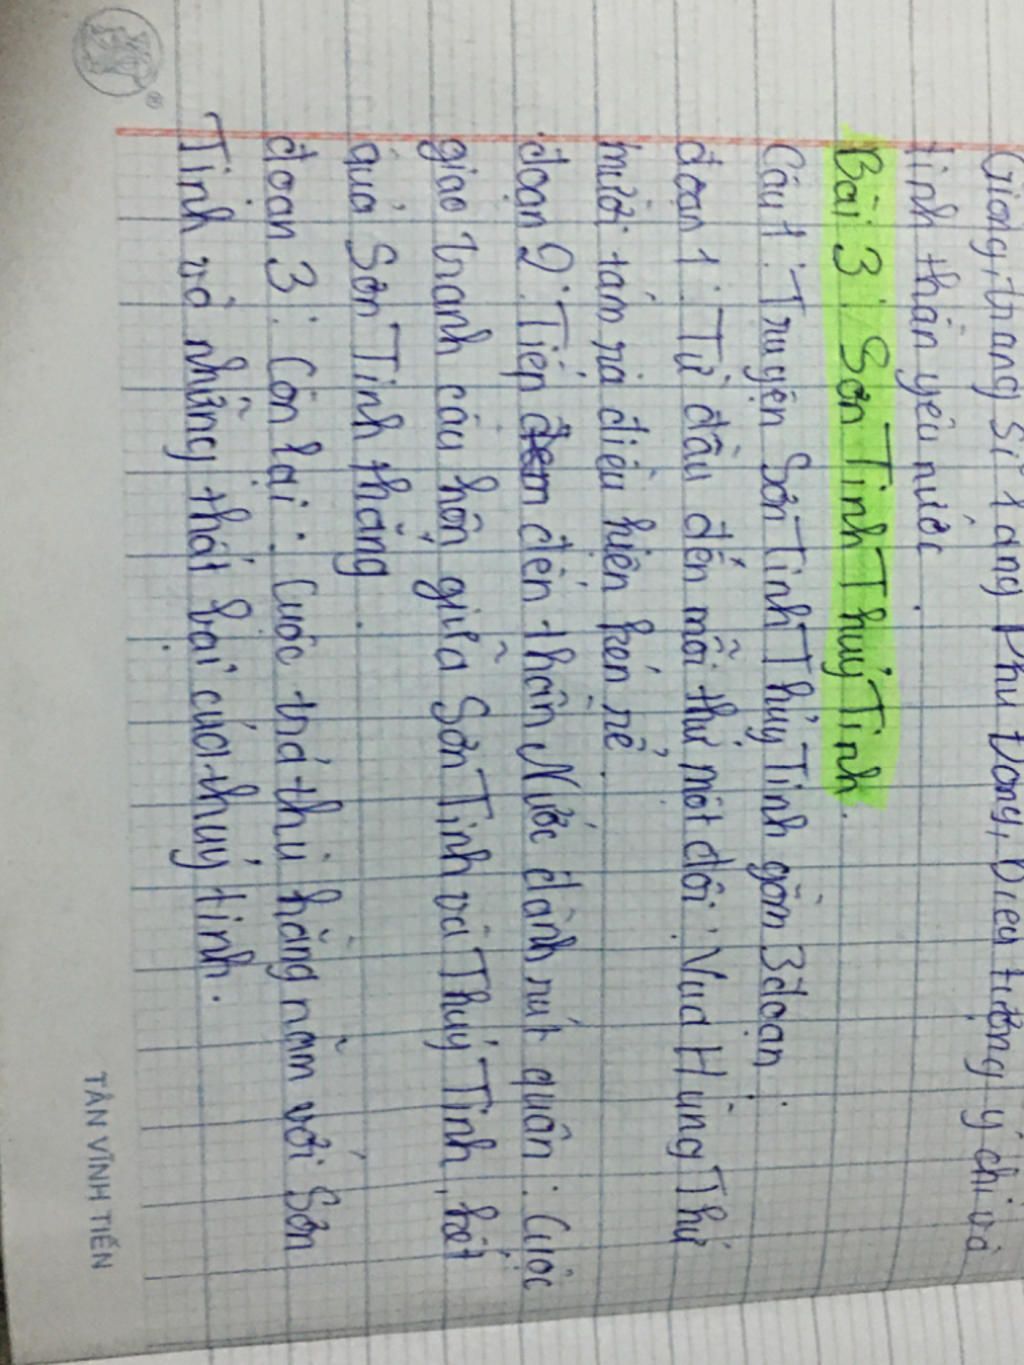 Gióng, tráng sĩ làng Phù Đổng, biểu tượng ý chí và
tinh thần yêu nước.
Bài 3: Sơn Tinh Thuỷ Tinh.
Câu 1: Truyện Sơn Tinh Thủy Tinh gồm 3 đoạn:
đoạn 1: Từ đầu đến mỗi thứ một đôi: Vua Hùng Thứ
mười tám ra điều kiện kén rể.
đoạn 2: Tiếp đến thần Nước đành rút quân: Cuộc
giao tranh cầu hôn giữa Sơn Tinh và Thuỷ Tinh, kết
quả Sơn Tinh thắng.
đoạn 3: Còn lại: Cuộc trả thù hằng năm với Sơn
Tinh và những thất bại của thuỷ tinh.
TÂN VĨNH TIẾN